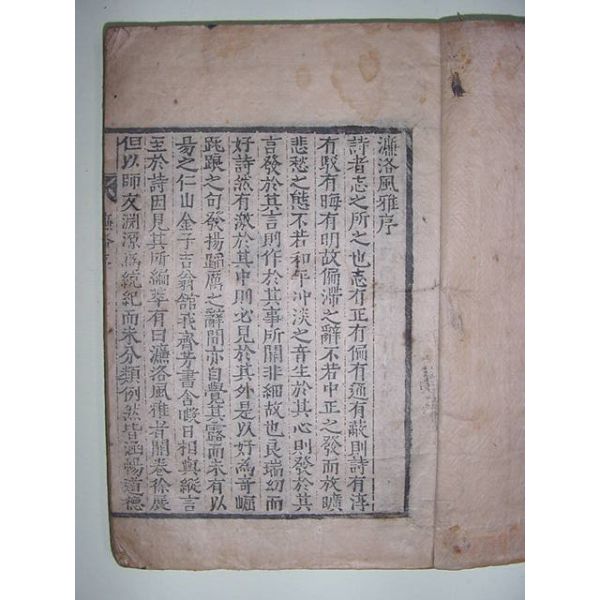 濂洛風雅序
詩者志之所之也志有正有偏有通有蔽則詩有淳
有駁有晦有明故偏滯之辭不若中正之發而放曠
悲愁之態不若和平冲淡之音生於其心則發於其
言發於其言則作於其事所關非細故也良瑞幼而
好詩然有激於其中則必見於其外是以好為奇崛
跌踼之句發揚蹈厲之辭間亦自覺其露而未有以
易之仁山金子吉翁館我齊芳書舍暇日相與縱言
至於詩因見其所編萃有曰濂洛風雅者開卷徐展
但以師友淵源爲統紀而未分類例然皆涵暢道德
濂洛序